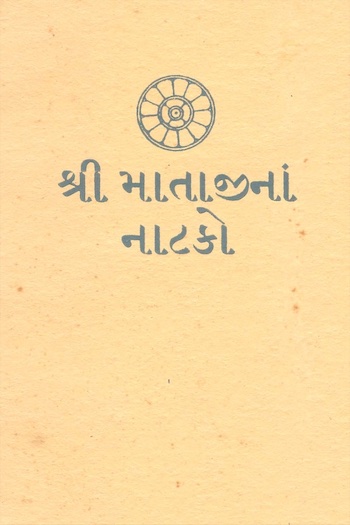 શ્રી માતાજીનાં
નાટકો